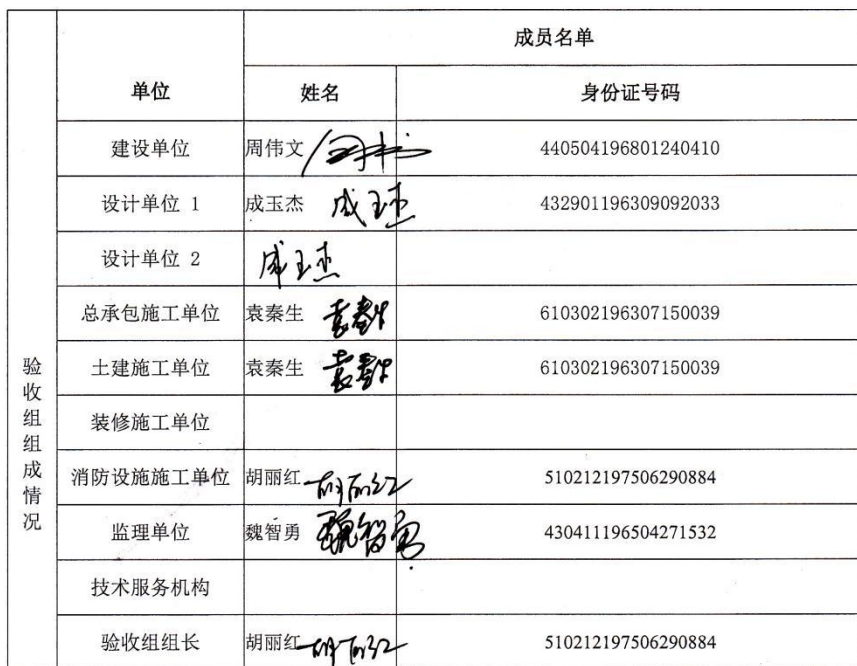 成员名单
单位 姓名 身份证号码
建设单位 周伟文 440504196801240410
设计单位 1 成玉杰 成玉杰 432901196309092033
设计单位 2 成玉杰
总承包施工单位 袁秦生 袁秦生 610302196307150039
土建施工单位 袁秦生 袁秦生 610302196307150039
装修施工单位
消防设施施工单位 胡丽红 胡丽红 510212197506290884
监理单位 魏智勇 魏智勇 430411196504271532
技术服务机构
验收组组长 胡丽红 胡丽红 510212197506290884
验收组组成情况